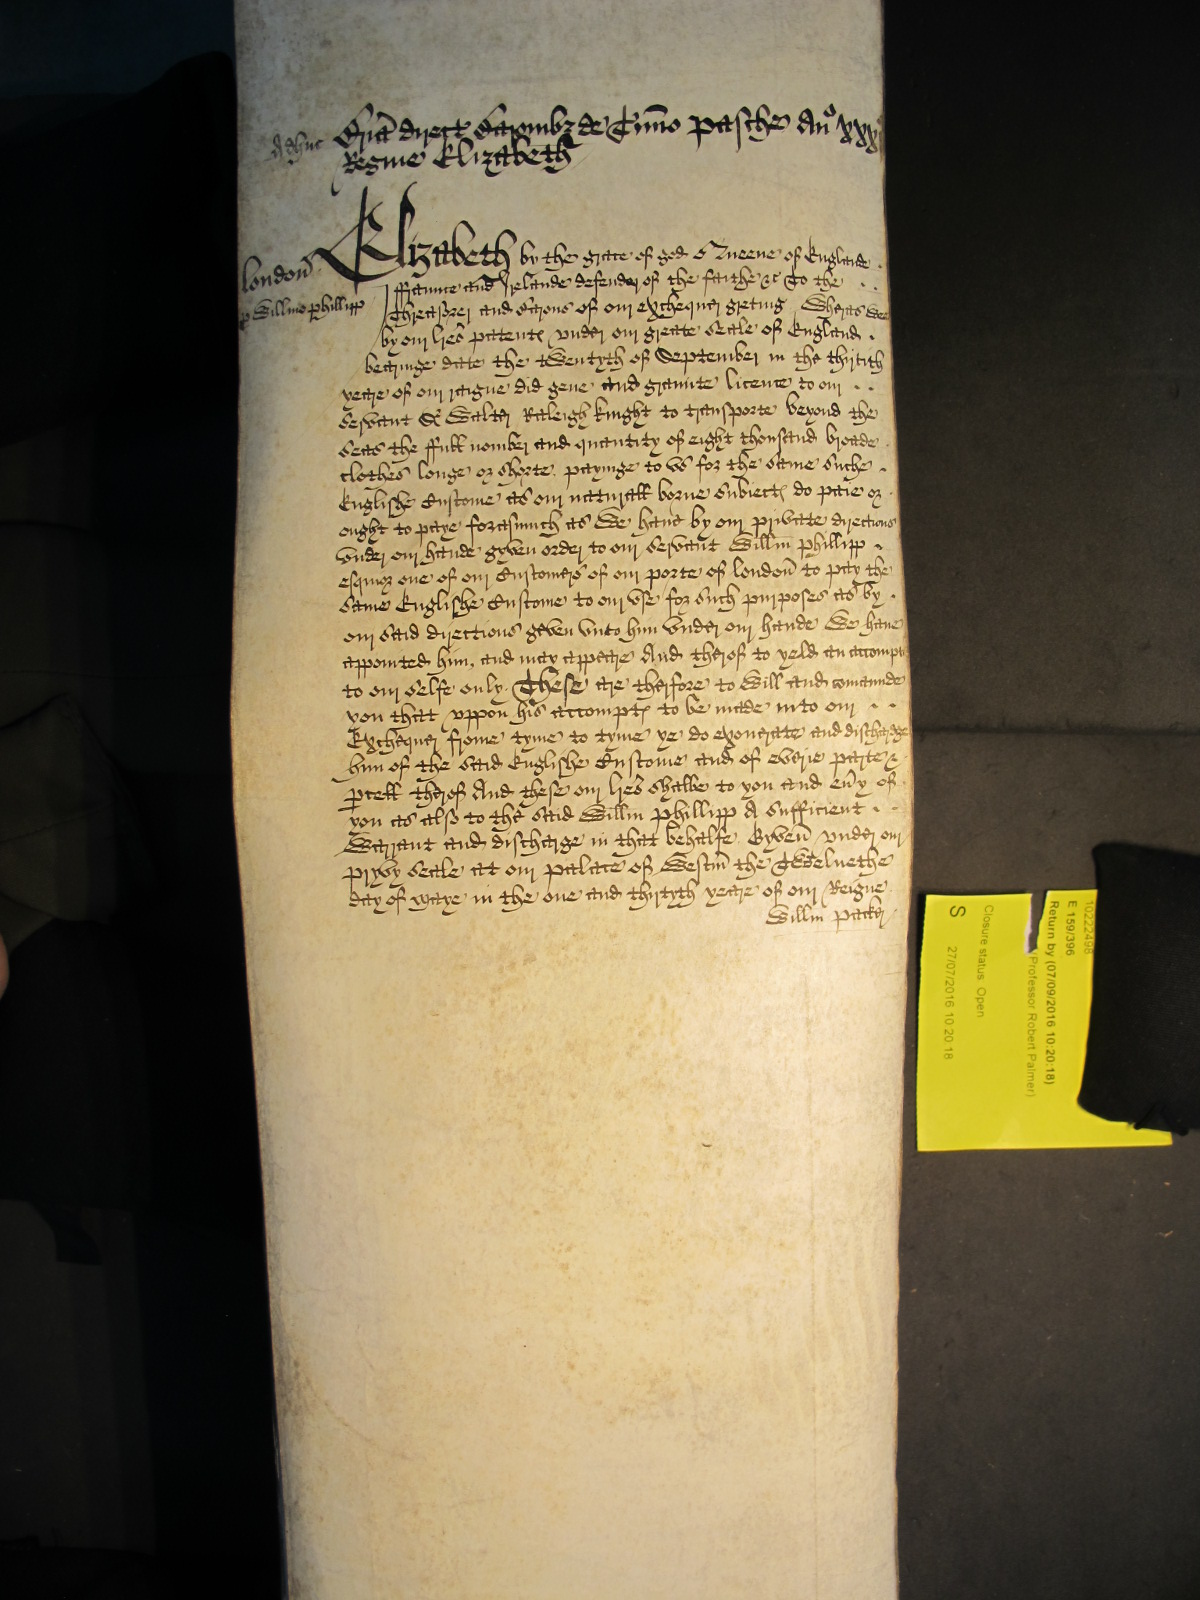 Adhuc Bria direct Baronibz de Tmio pasche Anº xxx
Regine Elizabeth
London
p Willmo Phillipp
Elizabeth by the grace of god Queene of Englande
ffraunce and Irelande defender of the faithe &c To the
Threasorer and Barons of our exchequer greting Wheras wee
by our lres patente under our greate Seale of England
bearinge date the twentyth of September in the thirtith
yeare of our raigne did geve and graunte licence to our
servant Sr Walter Raleigh knight to transporte beyond the
Seas the full nomber and quantity of eight thousand broade
clothes longe or shorte, payinge to us for the same suche
Englishe Custome as our naturall borne subiects do paie or
ought to paye forasmuch as We have by our private directions
under our hande gyven order to our servant Willm Phillipp
esquior one of our Customers of our porte of london to pay the
same Englishe Custome to our use for such purposes as by
our said directions geven unto him under our hande We have
appointed him, and may appeare And therof to yeld an accompt
to our selfe only. These are therfore to will and comaunde
you that uppon his accompts to be made into our
Exchequer frome tyme to tyme ye do exonerate and discharge
him of the said Englishe Custome and of everie parte &
pcell therof And these our lres shalbe to you and eny of
you as also to the said Willm Phillipp A sufficient
Warrant and discharge in that behalfe. Gyven under our
pryvy Seale at our palace of Westm the Twelvethe
day of Maye in the one and thirtyth yeare of our Reigne
Willm Packer
10222498
E 159/396
Return by (07/09/2016 10:20:18)
(Professor Robert Palmer)
Closure status: Open
S 27/07/2016 10:20:18